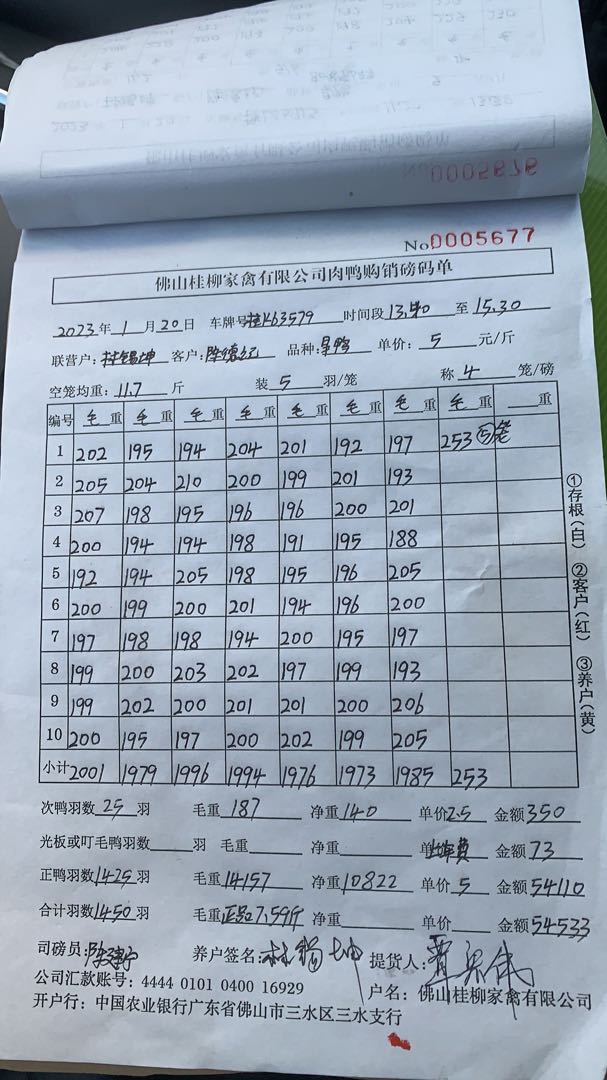 No 0005676
No.0005677
佛山桂柳家禽有限公司肉鸭购销磅码单
2023年 1 月 20 日 车牌号桂K63579 时间段 13.40 至 15.30
联营户: 林锡坤 客户: 品种: 单价: 5 元/斤
空笼均重: 11.7 斤 装 5 羽/笼 称 4 笼/磅
编号 毛 重 毛 重 毛 重 毛 重 毛 重 毛 重 毛 重 毛 重 重
1 202 195 194 204 201 192 197 253 ⑤笼
2 205 204 210 200 199 201 193
3 207 198 195 196 196 200 201
4 200 194 194 198 191 195 188
5 192 194 205 198 195 196 205
6 200 199 200 201 194 196 200
7 197 198 198 194 200 195 197
8 199 200 203 202 197 199 193
9 199 202 200 201 201 200 206
10 200 195 197 200 202 199 205
小计 2001 1979 1996 1994 1976 1973 1985 253
①存根(白) ②客户(红) ③养户(黄)
次鸭羽数 25 羽 毛重 187 净重 140 单价 2.5 金额 350
光板或叮毛鸭羽数 羽 毛重 净重 金额 73
正鸭羽数 1425 羽 毛重 14157 净重 10822 单价 5 金额 54110
合计羽数 1450 羽 毛重 7.59斤 净重 单价 金额 54533
司磅员: 养户签名: 林锡坤 提货人:
公司汇款账号: 4444 0101 0400 16929 户名: 佛山桂柳家禽有限公司
开户行: 中国农业银行广东省佛山市三水区三水支行